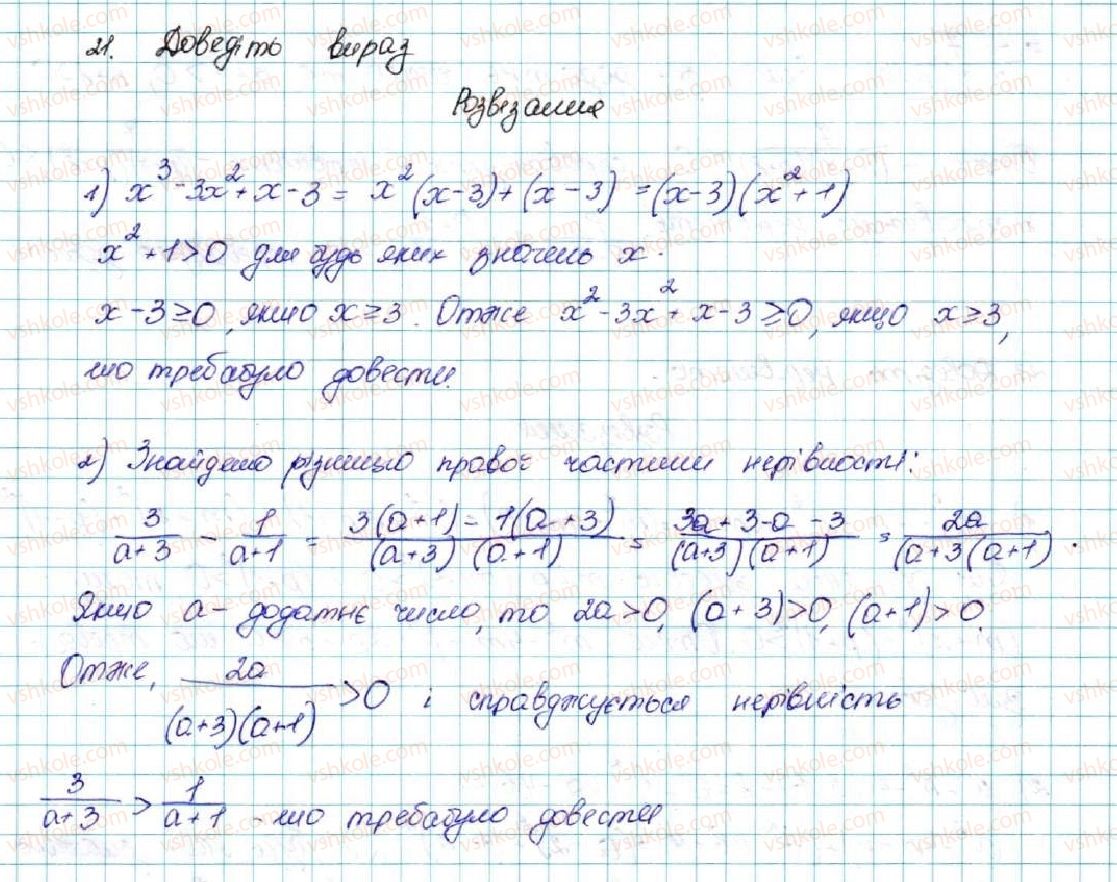 21. Доведіть вираз
Розвезання
1) x³ - 3x² + x - 3 = x² (x - 3) + (x - 3) = (x - 3) (x² + 1)
x² + 1 > 0 для будь яких значень x.
x - 3 ≥ 0, якщо x ≥ 3. Отже x² - 3x² + x - 3 ≥ 0, якщо x ≥ 3,
що требабуло довести.
2) Знайдемо різницю правої частини нерівності:
3/(a+3) - 1/(a+1) = 3(a+1) - 1(a+3)/(a+3)(a+1) = 3a+3-a-3/(a+3)(a+1) = 2a/(a+3(a+1).
Якшо a - додатнє число, то 2a > 0, (a + 3) > 0, (a + 1) > 0.
Отже, 2a/(a+3)(a+1) > 0 і справджується нерівність
3/(a+3) > 1/(a+1) - що требабуло довести